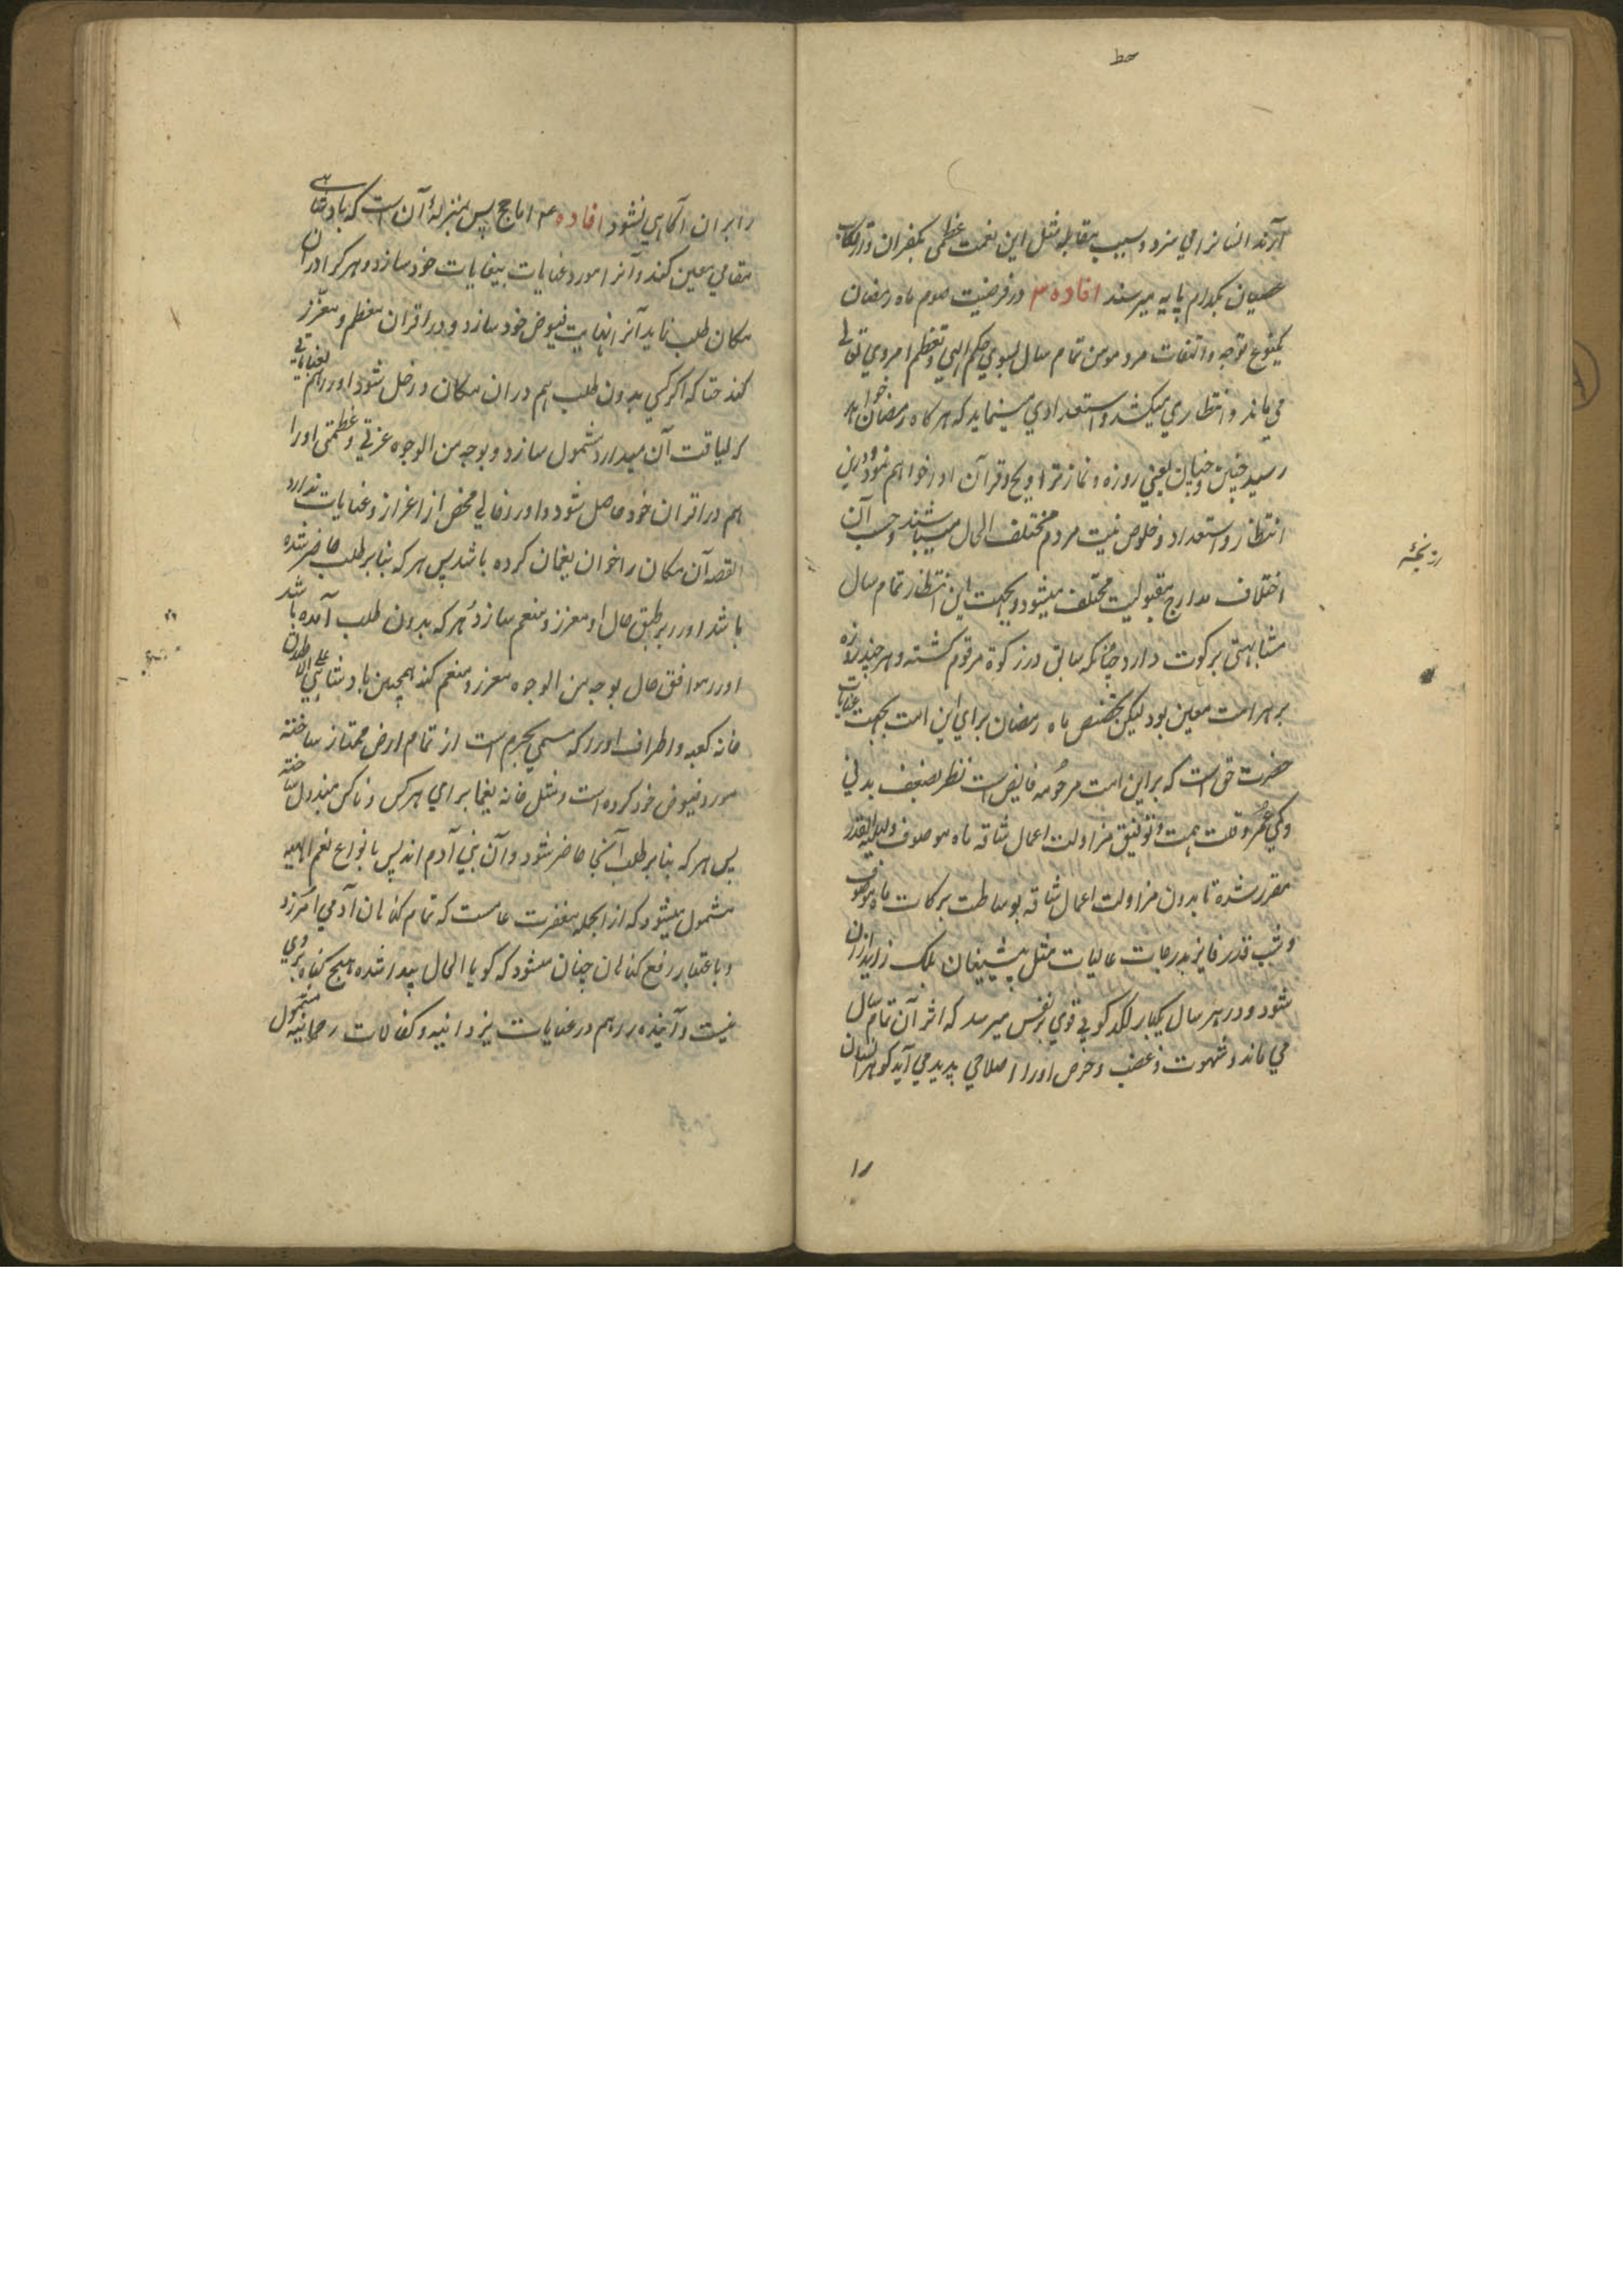 حط
آرند انسانرا مي سزد و بسبب مقابله مثل اين نعمت عظمى بكفران و ارتكاب
عصيان بكدام پايه ميرسند افاده ٣ در فرضيت صوم ماه رمضان
يكنوع توجه و التفات مرد مومن تمام سال بسوي حكم الهي و تعظيم امر وي تعالى
مي ماند و انتظاري ميكشد و استعدادي مينمايد كه هر كاه رمضان خواهد
رسيد چنين و چنان يعني روزه و نماز تراويح و قرآن ادا خواهم نمود و درين
انتظار و استعداد و خلوص نيت مردم مختلف الحال ميباشند و حسب آن
اختلاف مدارج مقبوليت مختلف ميشود و بجهت اين انتظار تمام سال
مشابهتى بزكوت دارد چنانكه سابق در زكوة مرقوم كشته و هر چند روزه
بر هر امت معين بود ليكن تخصيص ماه رمضان براي اين امت بجهت عنايات
حضرت حق است كه بر اين امت مرحومه فايض است نظر بضعف بدني
و كمي عمر و قلت همت و توفيق مزاولت اعمال شاقه ماه موصوف و ليلة القدر
مقرر شده تا بدون مزاولت اعمال شاقه بوساطت بركات ماه موصوف
و شب قدر فايز بدرجات عاليات مثل پيشينيان بلك زايد ازان
شود و در هر سال يكبار لكدكوبي قوي بر نفس ميرسد كه اثر آن تمام سال
مي ماند و شهوت و غضب و حرص او را اصلاحي پديد مي آيد كو هر انسان
را بران آكاهي نشود افاده ٤ اما حج پس بمنزلۀ آن است كه بادشاهے
مقامي معين كند و آنرا مورد عنايات بيغايات خود سازد و هر كرا دران
مكان طلب نمايد آنرا نهايت فيوض خود سازد و در اقران معظم و معزز
كند حتا كه اكر كسي بدون طلب هم دران مكان داخل شود او را هم بعناياتي
كه لياقت آن ميدارد مشمول سازد و بوجه من الوجوه عزتي و عظمتى او را
هم در اقران خود حاصل شود و او را خالي محض از اعزاز و عنايات ندارد
القصه آن مكان را خوان يغمان كرده باشد پس هر كه بنابر طلب حاضر شده
باشد او را بر طبق حال او معزز و منعم سازد و هر كه بدون طلب آمده باشد
او را موافق حال بوجه من الوجوه معزز و منعم كند همچنين بادشاه علي الاطلاق
خانه كعبه و اطراف او را كه مسمي بحرم است از تمام ارض ممتاز ساخته
مورد فيوض خود كرده است و مثل خانه يغما براي هر كس و ناكس مبذول ساخته
پس هر كه بنابر طلب آنجا حاضر شود و آن بني آدم اند پس بانواع نعم الهيه
مشمول ميشود كه از انجمله مغفرت عامست كه تمام كناهان آدمي آمرزد
و باعتبار رفع كناهان چنان ميشود كه كويا الحال پيدا شده هيچ كناه بر وي
نيست و آينده را هم در عنايات يزدانيه و كفالات رحمانيه مشمول